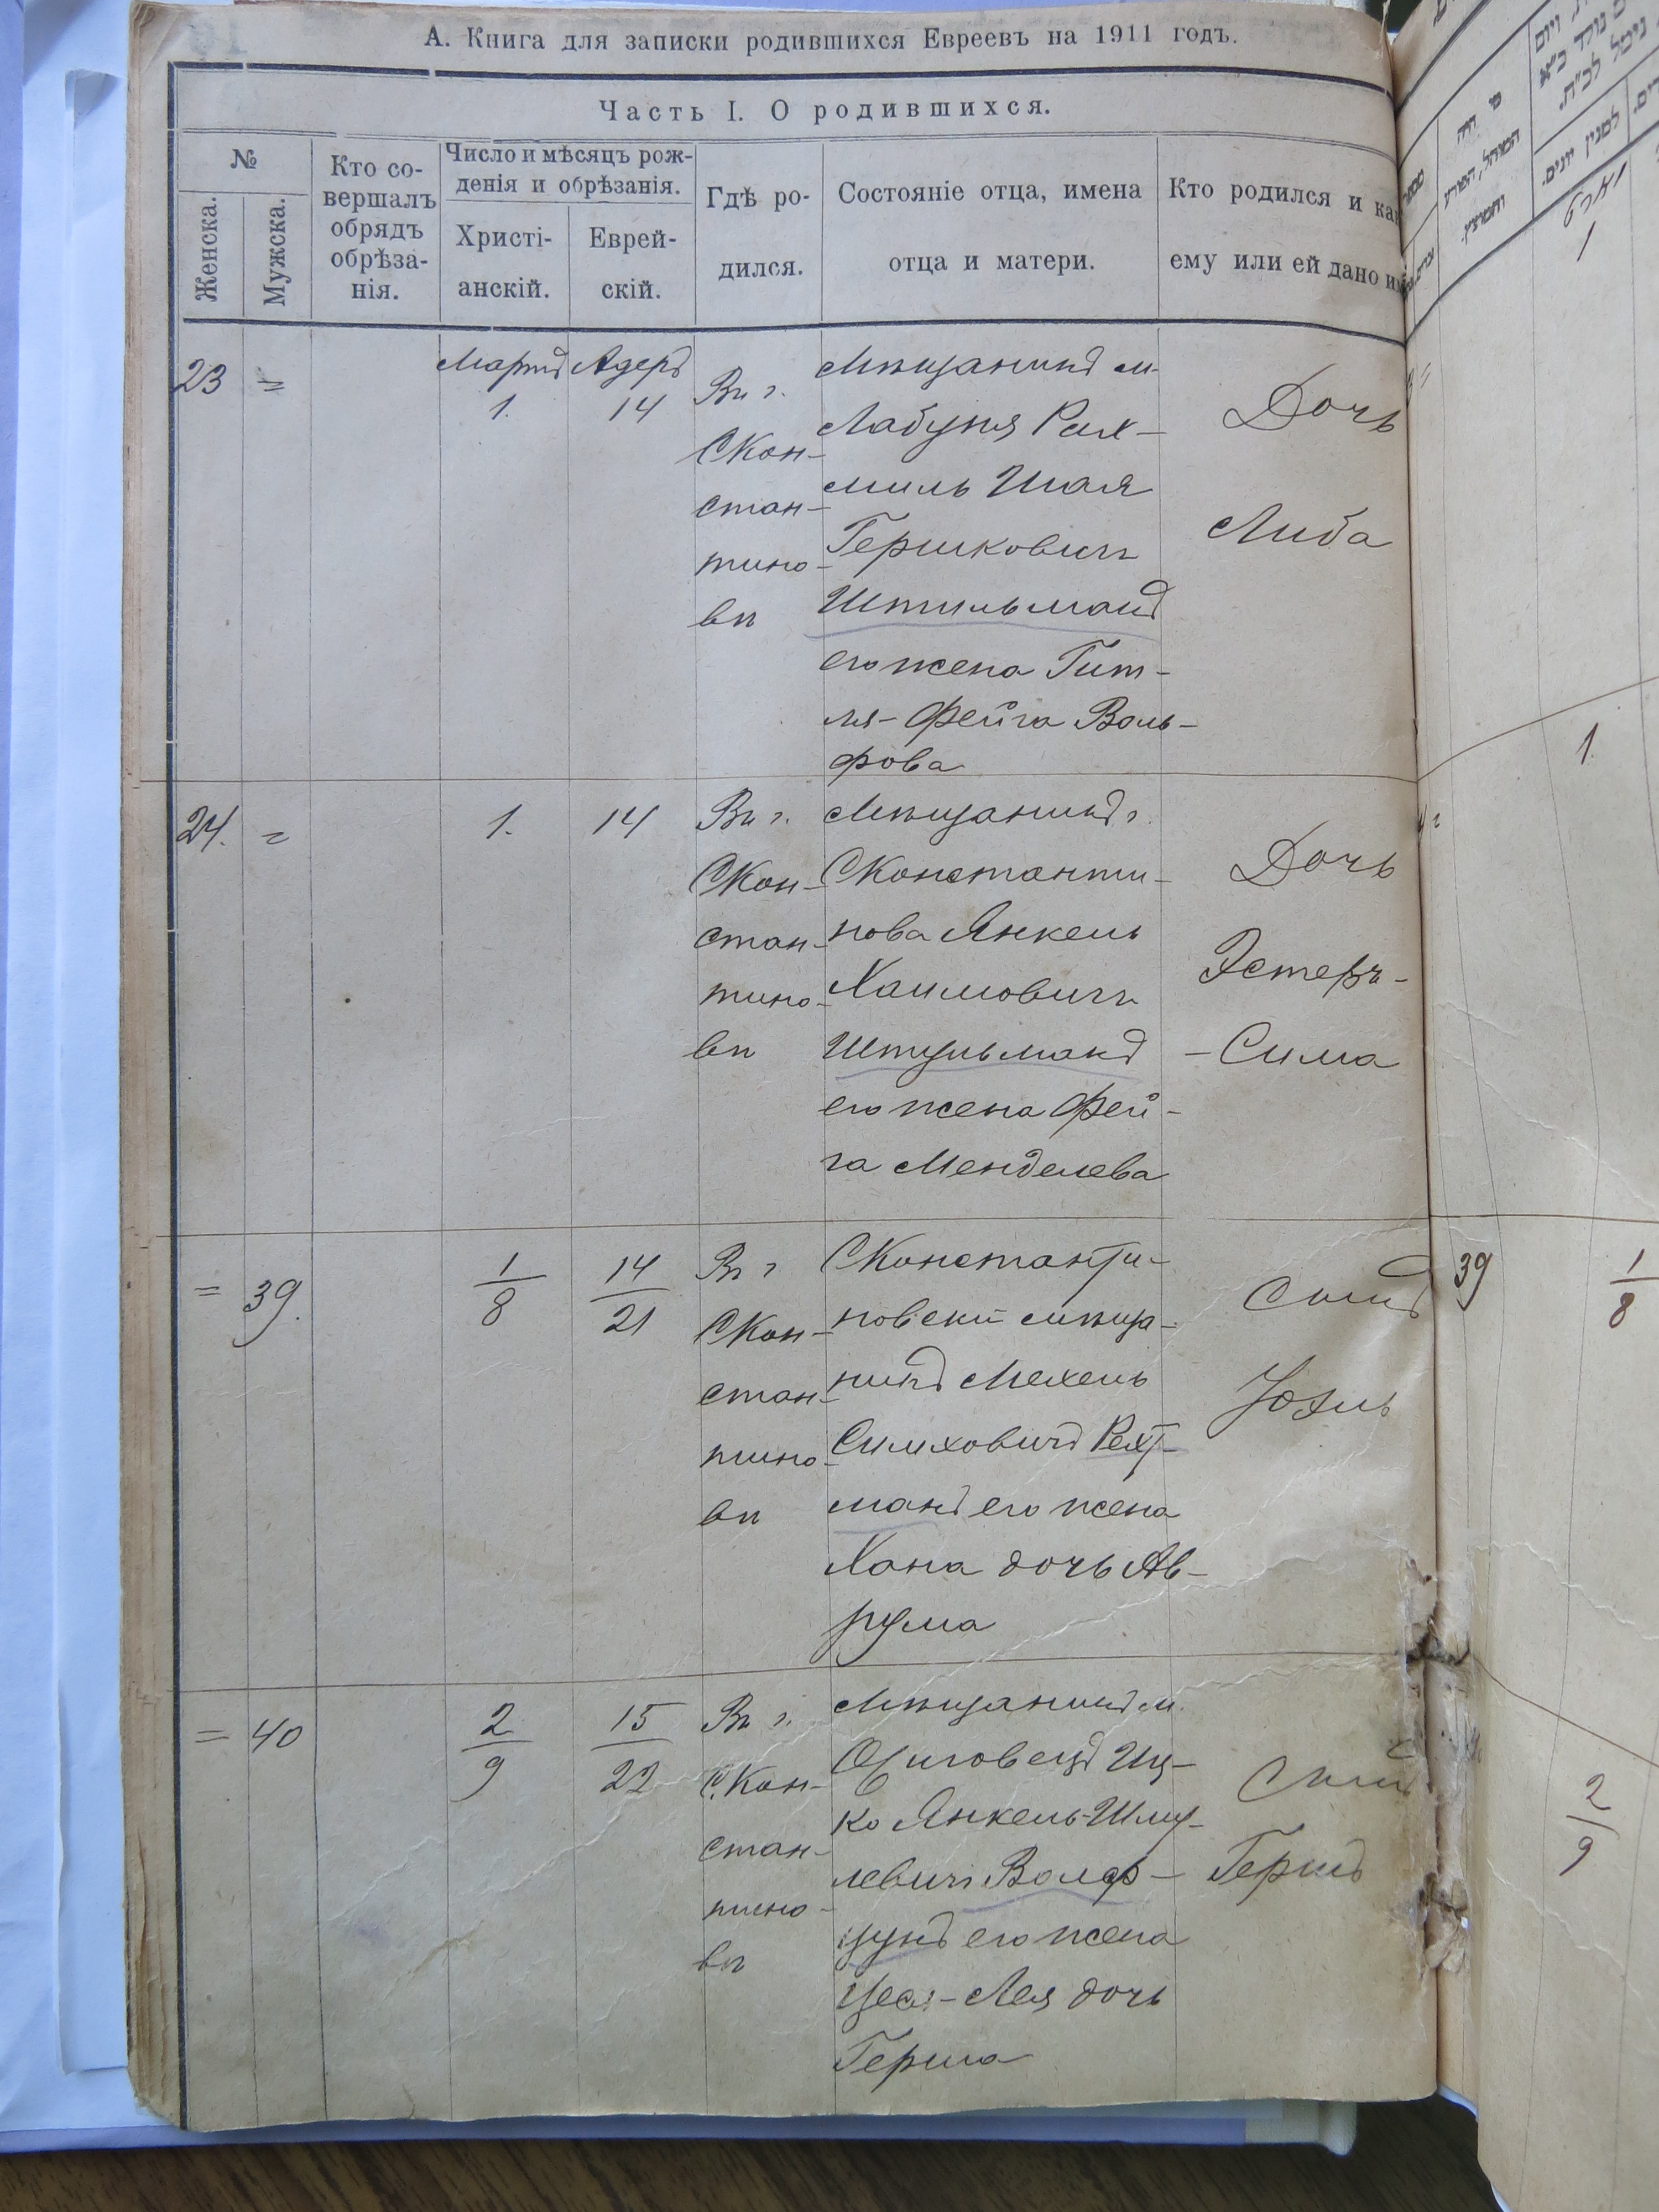 А. Книга для записки родившихся Евреевъ на 1911 годъ.
Часть I. О родившихся.
№
Женска.
Мужска.
Кто со-
вершалъ
обрядъ
обрѣза-
нія.
Число и мѣсяцъ рож-
денія и обрѣзанія.
Христі-
анскій.
Еврей-
скій.
Гдѣ ро-
дился.
Состояніе отца, имена
отца и матери.
Кто родился и как
ему или ей дано им
23 =
Мартъ
1.
Адеръ
14
Въ г.
СКон-
стан-
тино-
вѣ
Мѣщанинъ м.
Лабуня Рах-
миль Шая
Гершковичъ
Штильманъ
его жена Гит-
ля-Фейга Воль-
фова
Дочь
Либа
24. =
1.
14
Въ г.
СКон-
стан-
тино-
вѣ
Мѣщанинъ г.
СКонстанти-
нова Янкель
Хаимовичъ
Штульманъ
его жена Фей-
га Менделева
Дочь
Эстеръ-
-Сима
= 39.
1
8
14
21
Въ г
СКон-
стан-
тино-
вѣ
СКонстанти-
новскій мѣща-
нинъ Мехель
Симховичъ Рехт-
манъ его жена
Хана дочь Ав-
рума
Сынъ
Іоэль
= 40
2
9
15
22
Въ г.
С.Кон-
стан-
тино-
вѣ
Мѣщанинъ м.
Иц-
ко Янкель-Шму-
левичъ Волф-
цунъ его жена
Лея дочь
Герша
Сынъ
Гершъ
39
1
8
2
9
1
1.